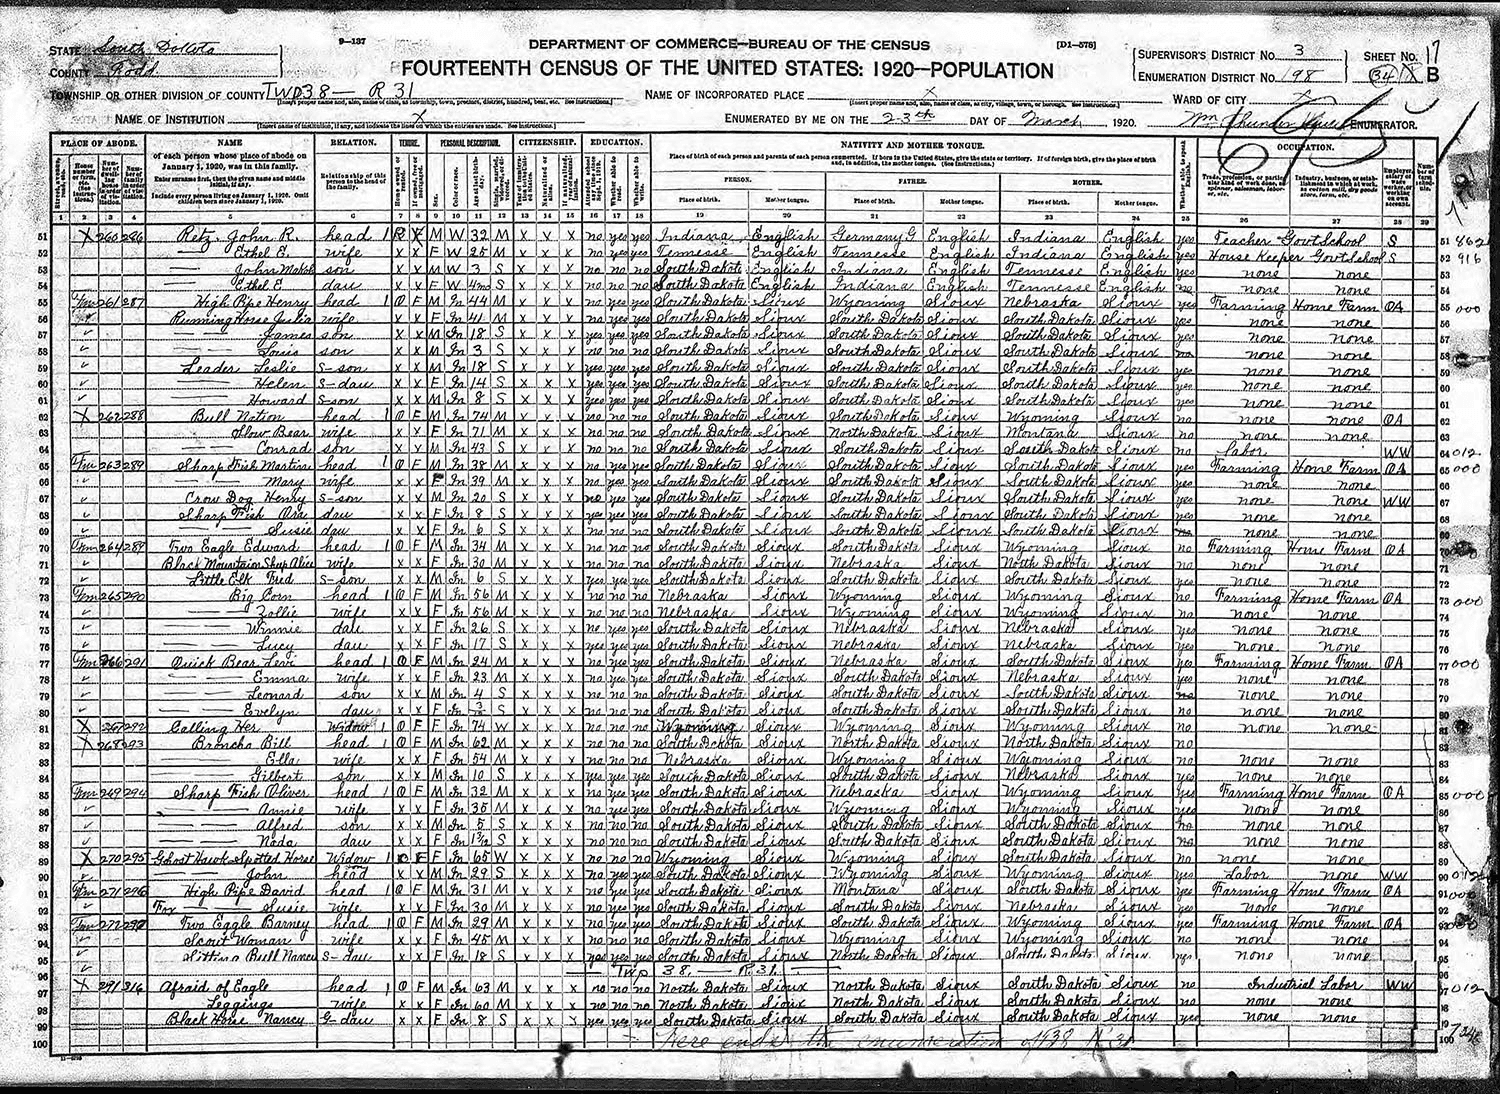 9-137
DEPARTMENT OF COMMERCE—BUREAU OF THE CENSUS
[D1-578]
STATE South Dakota
COUNTY Todd
FOURTEENTH CENSUS OF THE UNITED STATES: 1920—POPULATION
SUPERVISOR'S DISTRICT No. 3 SHEET No. 17
ENUMERATION DISTRICT No. 198 34 B
TOWNSHIP OR OTHER DIVISION OF COUNTY TWP 38 — R 31
NAME OF INCORPORATED PLACE X
WARD OF CITY X
NAME OF INSTITUTION X
ENUMERATED BY ME ON THE 23rd DAY OF March, 1920. Wm Thunder ENUMERATOR.
PLACE OF ABODE. NAME RELATION. TENURE. PERSONAL DESCRIPTION. CITIZENSHIP. EDUCATION. NATIVITY AND MOTHER TONGUE. OCCUPATION.
of each person whose place of abode on January 1, 1920, was in this family.
Enter surname first, then the given name and middle initial, if any.
Include every person living on January 1, 1920. Omit children born since January 1, 1920.
Relationship of this person to the head of the family.
Place of birth of each person and parents of each person enumerated. If born in the United States, give the state or territory. If of foreign birth, give the place of birth and, in addition, the mother tongue. (See Instructions.)
PERSON. FATHER. MOTHER.
Place of birth. Mother tongue. Place of birth. Mother tongue. Place of birth. Mother tongue.
1 2 3 4 5 6 7 8 9 10 11 12 13 14 15 16 17 18 19 20 21 22 23 24 25 26 27 28 29
51 X 260 286 Retz, John R. head 1 R X M W 32 M X X X no yes yes Indiana English Germany G English Indiana English yes Teacher Govt School S 51
52 Ethel E. wife X X F W 25 M X X X no yes yes Tennesse English Tennesse English Indiana English yes House Keeper Govt School S 52
53 John son X X M W 3 S X X X no no no South Dakota English Indiana English Tennesse English no none none 53
54 Ethel E. dau X X F W 4mo S X X X no no no South Dakota English Indiana English Tennesse English no none none 54
55 Fm 261 287 High Pipe Henry head 1 O F M In 44 M X X X no yes yes South Dakota Sioux Wyoming Sioux Nebraska Sioux yes Farming Home Farm OA 55 000
56 Running Horse Julia wife X X F In 41 M X X X no yes yes South Dakota Sioux South Dakota Sioux South Dakota Sioux yes none none 56
57 James son X X M In 18 S X X X yes yes yes South Dakota Sioux South Dakota Sioux South Dakota Sioux yes none none 57
58 Louis son X X M In 3 S X X X no no no South Dakota Sioux South Dakota Sioux South Dakota Sioux no none none 58
59 Leader Leslie S-son X X M In 18 S X X X yes yes yes South Dakota Sioux South Dakota Sioux South Dakota Sioux yes none none 59
60 Helen S-dau X X F In 14 S X X X yes yes yes South Dakota Sioux South Dakota Sioux South Dakota Sioux yes none none 60
61 Howard S-son X X In 8 S X X X yes yes yes South Dakota Sioux South Dakota Sioux South Dakota Sioux yes none none 61
62 X 262 288 Bull Nation head 1 O F M In 74 M X X X no no no South Dakota Sioux South Dakota Sioux Wyoming Sioux no none none OA 62
63 Slow Bear wife X X F In 71 M X X X no no no South Dakota Sioux North Dakota Sioux Montana Sioux no none none 63
64 Conrad son X X M In 43 S X X X no no no South Dakota Sioux South Dakota Sioux South Dakota Sioux no Labor WW 64 012
65 Fm 263 289 Sharp Fish Martin head 1 O F M In 38 M X X X no yes yes South Dakota Sioux South Dakota Sioux South Dakota Sioux yes Farming Home Farm OA 65 000
66 Mary wife X X F In 39 M X X X no yes yes South Dakota Sioux South Dakota Sioux South Dakota Sioux yes none none 66
67 Crow Dog Henry S-son X X M In 20 S X X X no yes yes South Dakota Sioux South Dakota Sioux South Dakota Sioux yes none none WW 67
68 Sharp Fish dau X X F In 8 S X X X yes yes yes South Dakota Sioux South Dakota Sioux South Dakota Sioux yes none none 68
69 Susie dau X X F In 6 S X X X no no no South Dakota Sioux South Dakota Sioux South Dakota Sioux none none 69
70 Fm 264 289 Two Eagle Edward head 1 O F M In 34 M X X X no no no South Dakota Sioux South Dakota Sioux Wyoming Sioux no Farming Home Farm OA 70
71 Black Mountain Shup Alice wife X X F In 30 M X X X no no no South Dakota Sioux Nebraska Sioux North Dakota Sioux no none none 71
72 Little Elk Fred S-son X X M In 6 S X X X yes yes yes South Dakota Sioux South Dakota Sioux South Dakota Sioux yes none none 72
73 Fm 265 290 Big Corn head 1 O F M In 56 M X X X no no no Nebraska Sioux Wyoming Sioux Wyoming Sioux no Farming Home Farm OA 73 000
74 Zollie wife X X F In 56 M X X X no no no Nebraska Sioux Wyoming Sioux Wyoming Sioux no none none 74
75 Winnie dau X X F In 26 S X X X no yes yes South Dakota Sioux Nebraska Sioux Nebraska Sioux yes none none 75
76 Lucy dau X X F In 17 S X X X yes yes yes South Dakota Sioux Nebraska Sioux Nebraska Sioux yes none none 76
77 Fm 266 291 Quick Bear Levi head 1 O F M In 24 M X X X no yes yes South Dakota Sioux Nebraska Sioux South Dakota Sioux yes Farming Home Farm OA 77 000
78 Emma wife X X F In 23 M X X X no yes yes South Dakota Sioux South Dakota Sioux Nebraska Sioux yes none none 78
79 Leonard son X X M In 4 S X X X no no no South Dakota Sioux South Dakota Sioux South Dakota Sioux no none none 79
80 Evelyn dau X X F In S X X X no no no South Dakota Sioux South Dakota Sioux South Dakota Sioux no none none 80
81 X 267 292 Calling Her Widow 1 O F F In 74 W X X X no no no Wyoming Sioux Wyoming Sioux Wyoming Sioux no none none 81
82 X 268 293 Broncho Bill head 1 O F M In 62 M X X X no no no South Dakota Sioux North Dakota Sioux North Dakota Sioux no 82
83 Ella wife X X F In 54 M X X X no no no Nebraska Sioux Wyoming Sioux Wyoming Sioux no none none 83
84 Gilbert son X X M In 10 S X X X yes yes yes South Dakota Sioux South Dakota Sioux Nebraska Sioux yes none none 84
85 Fm 269 294 Sharp Fish Oliver head 1 O F M In 32 M X X X no yes yes South Dakota Sioux Nebraska Sioux Wyoming Sioux yes Farming Home Farm OA 85 000
86 Annie wife X X F In 35 M X X X no yes yes South Dakota Sioux Wyoming Sioux Wyoming Sioux yes none none 86
87 Alfred son X X M In 5 S X X X no no no South Dakota Sioux South Dakota Sioux South Dakota Sioux no none none 87
88 Nada dau X X F In S X X X no no no South Dakota Sioux South Dakota Sioux South Dakota Sioux no none none 88
89 X 270 295 Ghost Hawk Spotted Horse Widow 1 O F F In 65 W X X X no no no Wyoming Sioux Wyoming Sioux South Dakota Sioux no none none 89
90 John head X X M In 29 S X X X no yes yes South Dakota Sioux Wyoming Sioux Wyoming Sioux yes Labor none WW 90
91 Fm 271 296 High Pipe David head 1 O F M In 31 M X X X no yes yes South Dakota Sioux Montana Sioux South Dakota Sioux yes Farming Home Farm OA 91
92 Fox Susie wife X X F In 30 M X X X no yes yes South Dakota Sioux South Dakota Sioux Nebraska Sioux yes none none 92
93 Fm 272 297 Two Eagle Barney head 1 O F M In 29 M X X X no yes yes South Dakota Sioux South Dakota Sioux Wyoming Sioux yes Farming Home Farm OA 93
94 Scout Woman wife X X F In 45 M X X X no no no South Dakota Sioux Wyoming Sioux Wyoming Sioux no none none 94
95 Sitting Bull Nancy S-dau X X F In 18 S X X X yes yes yes South Dakota Sioux North Dakota Sioux South Dakota Sioux yes none none 95
96 — Twp 38. — R 31. — 96
97 X 291 316 Afraid of Eagle head 1 O F M In 63 M X X X no no no North Dakota Sioux North Dakota Sioux South Dakota Sioux no Industrial Labor WW 97 012
98 Leggings wife X X F In 60 M X X X no no no North Dakota Sioux North Dakota Sioux South Dakota Sioux no none none 98
99 Black Horse Nancy G-dau X X F In 8 S X X X yes yes yes South Dakota Sioux South Dakota Sioux South Dakota Sioux yes none none 99
100 Here ends the enumeration of T38 R 31 100